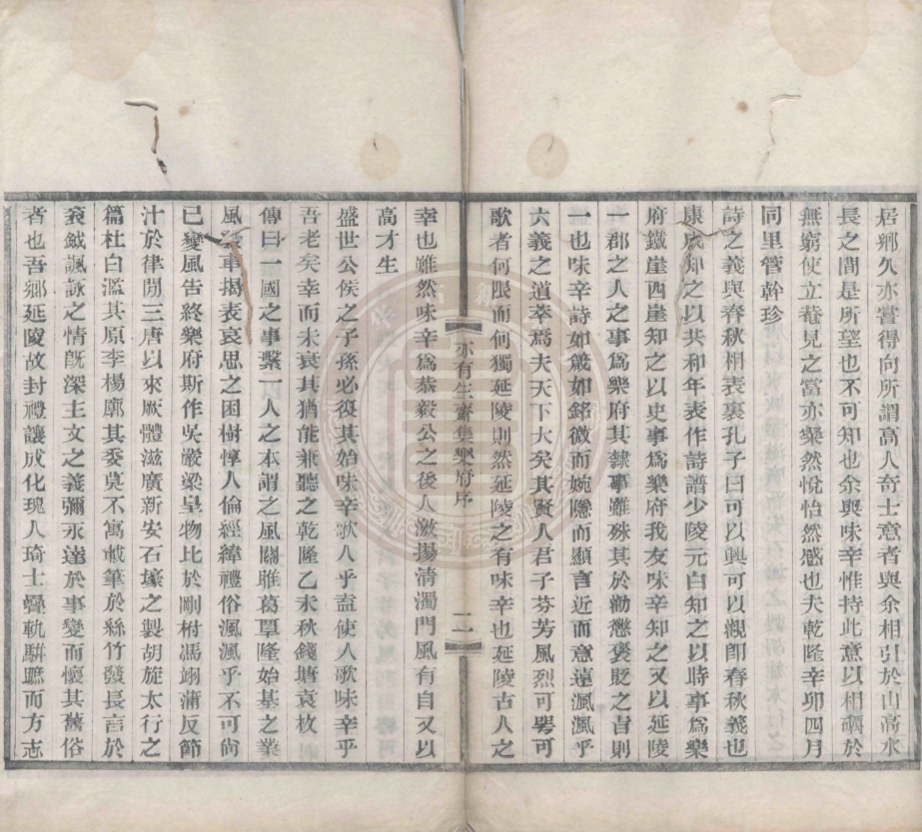 居鄉久亦當得向所謂高人奇士意者與余相引於山高水
長之間是所望也不可知也余與味辛惟持此意以相礪於
無窮使立菴見之當亦粲然悅怡然感也夫乾隆辛卯四月
同里管幹珍
詩之義與春秋相表裏孔子曰可以興可以觀卽春秋義也
康成知之以共和年表作詩譜少陵元白知之以時事爲樂
府鐵崖西崖知之以史事爲樂府我友味辛知之又以延陵
一郡之人之事爲樂府其隸事雖殊其於勸懲褒貶之旨則
一也味辛詩如箴如銘微而婉隱而顯言近而意遠渢渢乎
六義之道萃焉夫天下大矣其賢人君子芬芳風烈可咢可
歌者何限而何獨延陵則然延陵之有味辛也延陵古人之
亦有生齋集樂府序
二
幸也雖然味辛爲恭毅公之後人激揚清濁門風有自又以
高才生
盛世公侯之子孫必復其始味辛歌人乎盍使人歌味辛乎
吾老矣幸而未衰其猶能兼聽之乾隆乙未秋錢塘袁枚
傳曰一國之事繫一人之本謂之風關雎葛覃隆始基之業
風車揭表哀思之困樹惇人倫經緯禮俗渢渢乎不可尙
已變風告終樂府斯作吳嚴梁皇物比於剛柎馮翊蒲反節
汁於律閒三唐以來厥體滋廣新安石壕之製胡旋太行之
篇杜白濫其原李楊廓其委莫不寓載筆於絲竹發長言於
袞鉞諷詠之情旣深主文之義彌永達於事變而懷其舊俗
者也吾鄉延陵故封禮讓成化瑰人琦士疊軌駢鑣而方志